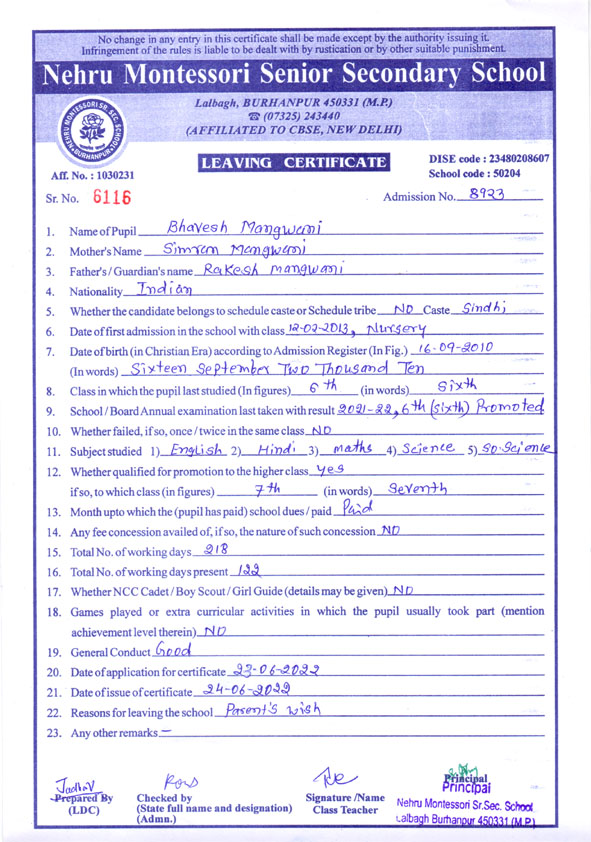 No change in any entry in this certificate shall be made except by the authority issuing it.
Infringement of the rules is liable to be dealt with by rustication or by other suitable punishment.
Nehru Montessori Senior Secondary School
Lalbagh, BURHANPUR 450331 (M.P.)
☎ (07325) 243440
(AFFILIATED TO CBSE, NEW DELHI)
NEHRU MONTESSORI SR. SEC. SCHOOL
BURHANPUR
LEAVING CERTIFICATE
DISE code : 23480208607
Aff. No. : 1030231
School code : 50204
Sr. No. 6116
Admission No. 8923
1. Name of Pupil Bhavesh Mangwani
2. Mother's Name Simran Mangwani
3. Father's / Guardian's name Rakesh mangwani
4. Nationality Indian
5. Whether the candidate belongs to schedule caste or Schedule tribe NO Caste Sindhi
6. Date of first admission in the school with class 12-02-2013, Nursery
7. Date of birth (in Christian Era) according to Admission Register (In Fig.) 16-09-2010
(In words) Sixteen September Two Thousand Ten
8. Class in which the pupil last studied (In figures) 6th (in words) Sixth
9. School / Board Annual examination last taken with result 2021-22, 6th (sixth) Promoted
10. Whether failed, if so, once / twice in the same class NO
11. Subject studied 1) English 2) Hindi 3) maths 4) Science 5) SO.Science
12. Whether qualified for promotion to the higher class yes
if so, to which class (in figures) 7th (in words) Seventh
13. Month upto which the (pupil has paid) school dues / paid Paid
14. Any fee concession availed of, if so, the nature of such concession NO
15. Total No. of working days 218
16. Total No. of working days present 122
17. Whether NCC Cadet / Boy Scout / Girl Guide (details may be given) NO
18. Games played or extra curricular activities in which the pupil usually took part (mention
achievement level therein) NO
19. General Conduct Good
20. Date of application for certificate 23-06-2022
21. Date of issue of certificate 24-06-2022
22. Reasons for leaving the school Parent's wish
23. Any other remarks –
Jadhav
Prepared By
(LDC)
Checked by
(State full name and designation)
(Admn.)
Signature /Name
Class Teacher
Principal
Principal
Nehru Montessori Sr.Sec. School
Lalbagh Burhanpur 450331 (M.P.)